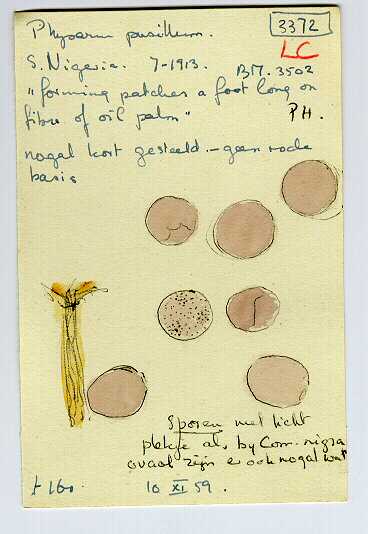 3372
Physarum pusillum.
LC
S. Nigeria. 7-1913. BM. 3502
"forming patches a foot long on
fibre of oil palm"
PH.
nogal kort gesteeld. - geen rode
basis
Sporen met licht
plekje als by Com. nigra
ovaal zijn er ook nogal wat
± 160
10 XI 59.